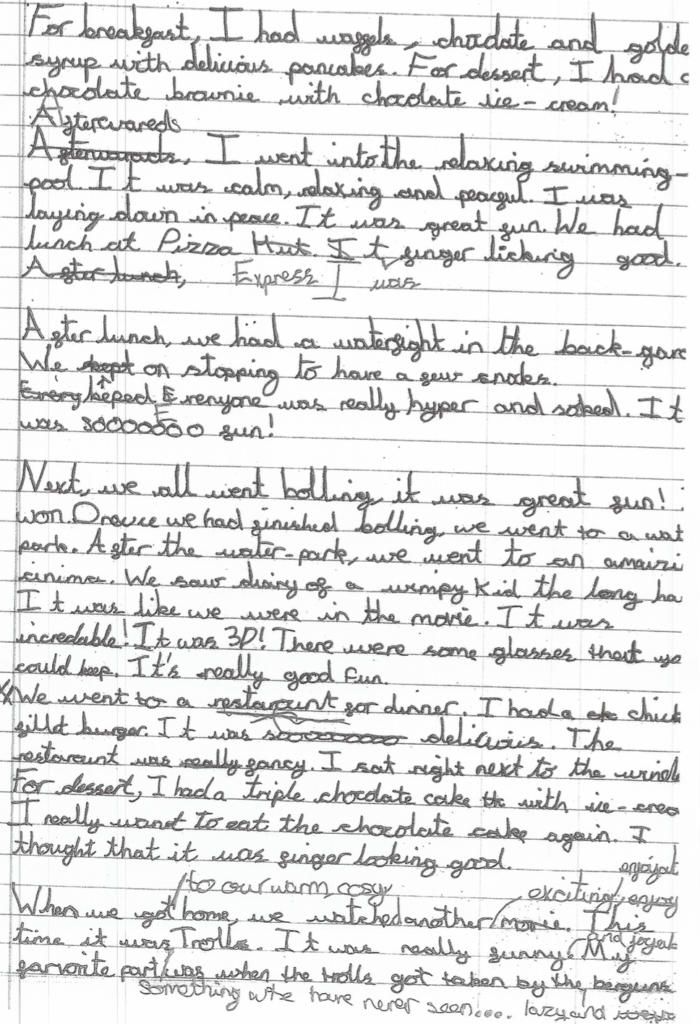 For breakfast, I had waffels, choclate and golde
syrup with delicious pancakes. For dessert, I had c
chocolate brownie with chocolate ice-cream!
Afterwareds
Afterwards, I went into the relaxing swimming-
pool. It was calm, relaxing and peacful. I was
laying down in peace. It was great fun. We had
lunch at Pizza Hut. It finger licking good.
After lunch, Express was
After lunch, we had a waterfight in the back-gard
We kept on stopping to have a few snakes.
Every keped Everyone was really hyper and soked. It
was soooooooo fun!
Next, we all went bolling, it was great fun! I
won. Once we had finished bolling, we went to a wat
park. After the water-park, we went to an amaizi
cinima. We saw diairy of a wimpy Kid the long ha
It was like we were in the movie. It was
incredable! It was 3D! There were some glasses that yo
could keep. It's really good fun.
We went to a restaraunt for dinner. I had a chick
fillt burger. It was soooooooo delicious. The
restaraunt was really fancy. I sat right next to the wind
For dessert, I had a triple chocolate cake with ice-crea
I really want to eat the chocolate cake again. I
thought that it was finger looking good.
enjoyat
to our warm, cosy exciting, enjoy
When we got home, we watched another movie. This
and joyat
time it was Trolls. It was really funny. My
farvorite part was when the trolls got taken by the berguns
something we have never seen.... lazy and